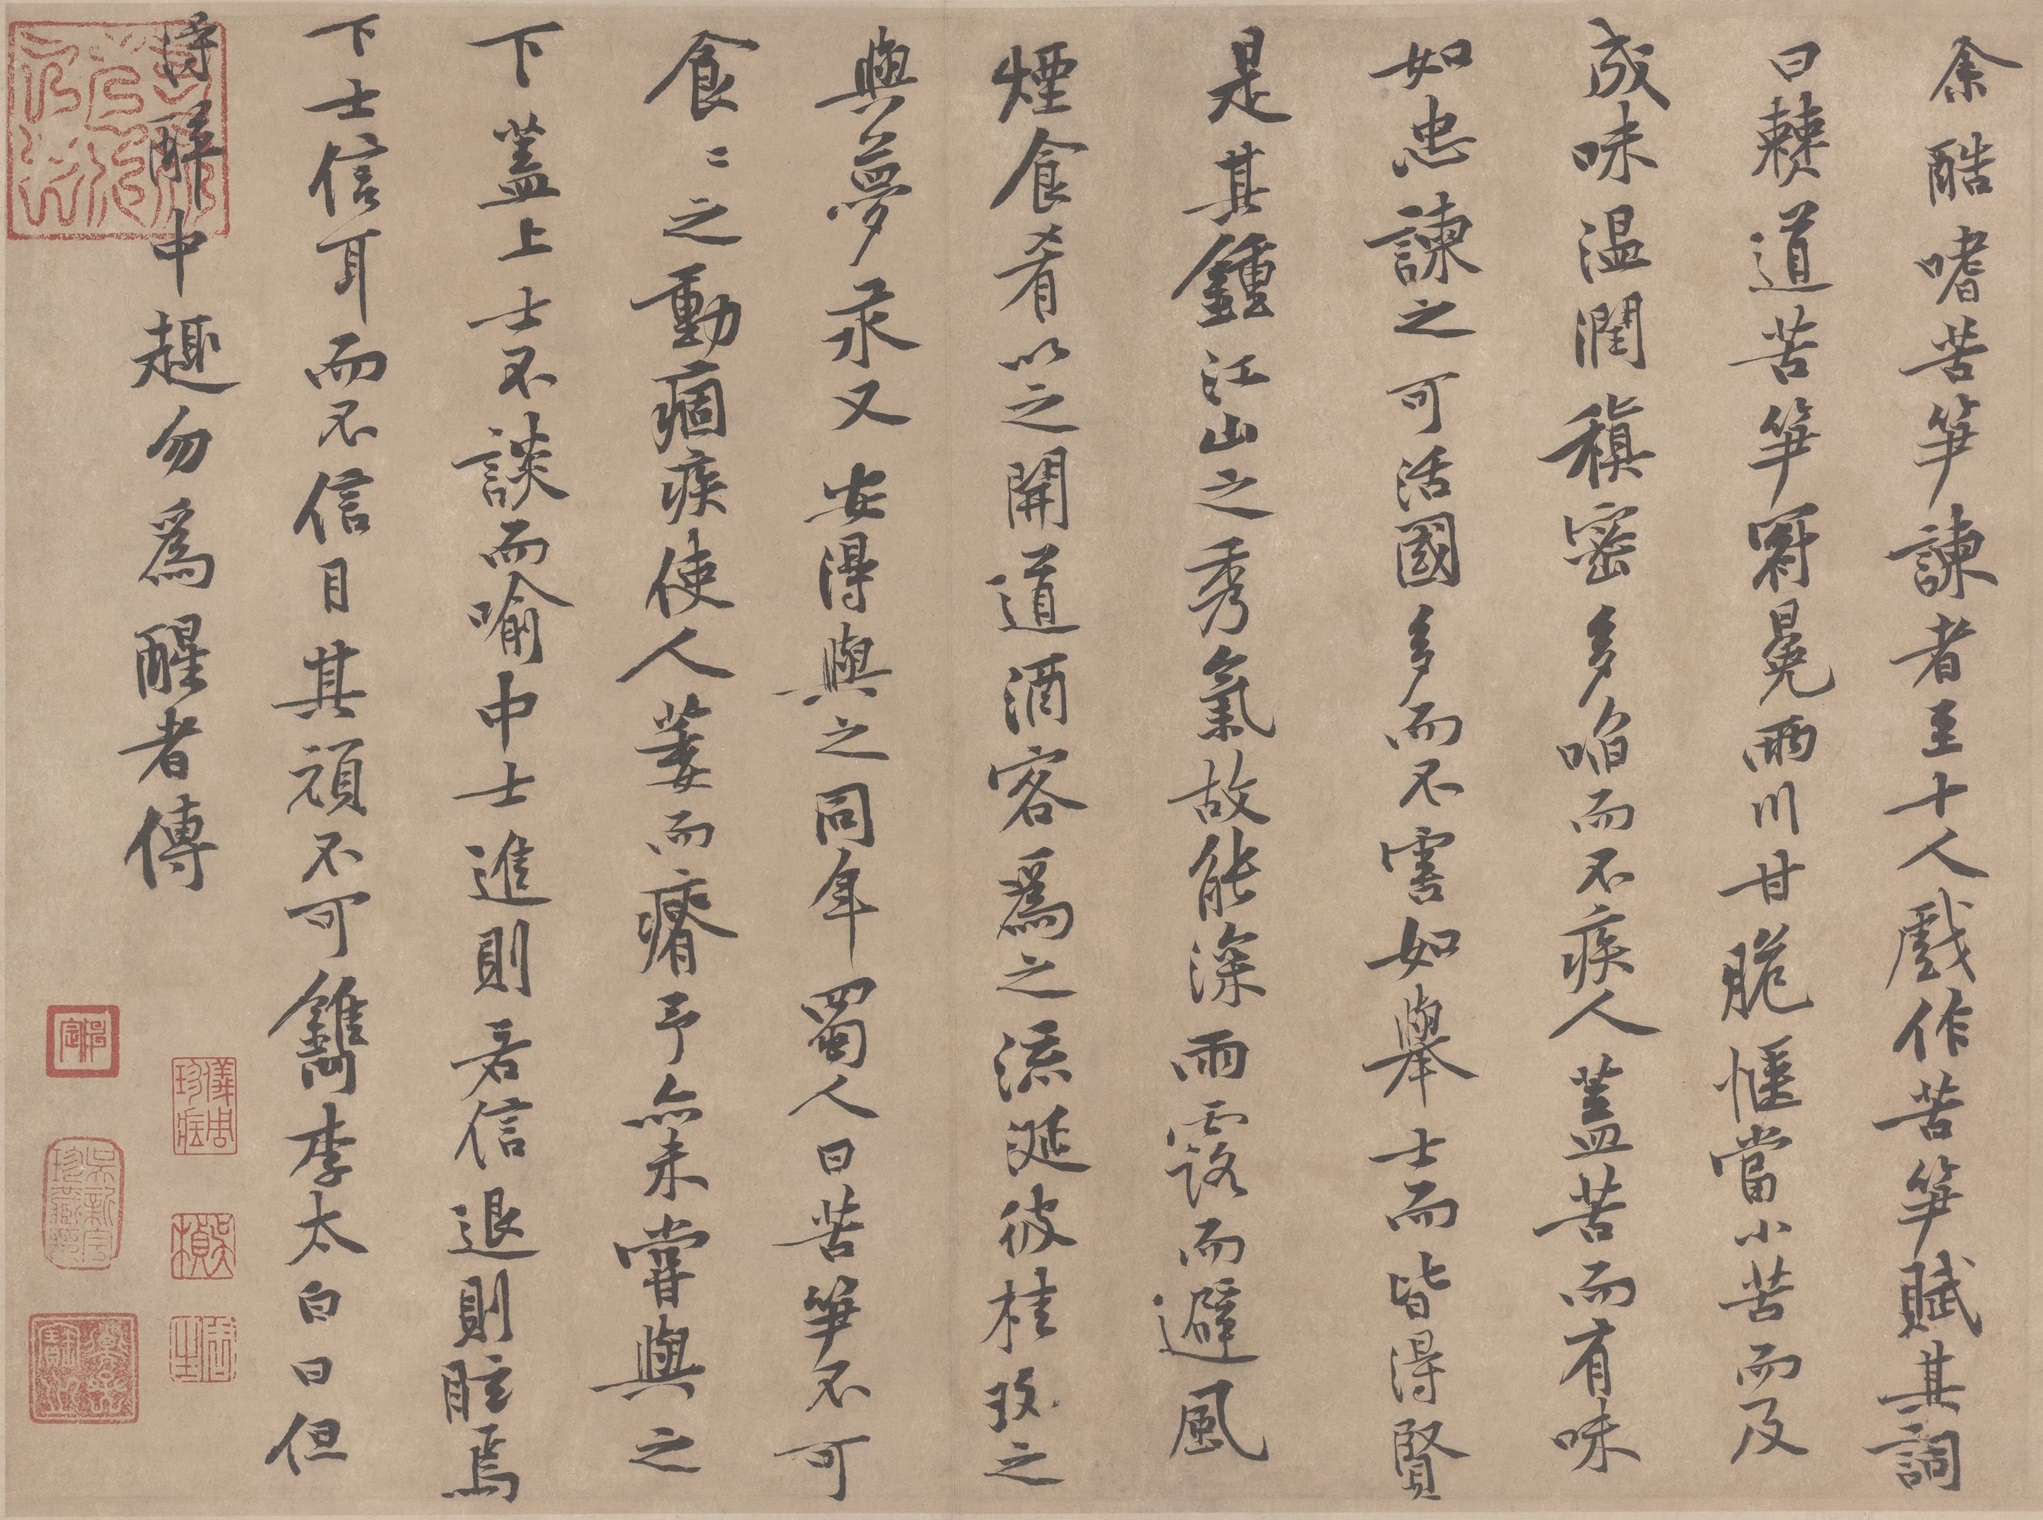 余酷嗜苦笋諫者至十人戲作苦笋賦其詞
曰僰道苦笋冠冕兩川甘脆愜當小苦而及
成味温潤稹密多啗而不疾人蓋苦而有味
如忠諫之可活國多而不害如舉士而皆得賢
是其鍾江山之秀氣故能深雨露而避風
煙食肴以之開道酒客爲之流涎彼桂玫之
與夢汞又安得與之同年蜀人曰苦笋不可
食〻之動痼疾使人萎而瘠予亦未嘗與之
下蓋上士不談而喻中士進則若信退則眩焉
下士信耳而不信目其頑不可鐫李太白曰但
得醉中趣勿爲醒者傳
儀周珍藏
吳楨
吳新宇珍藏印